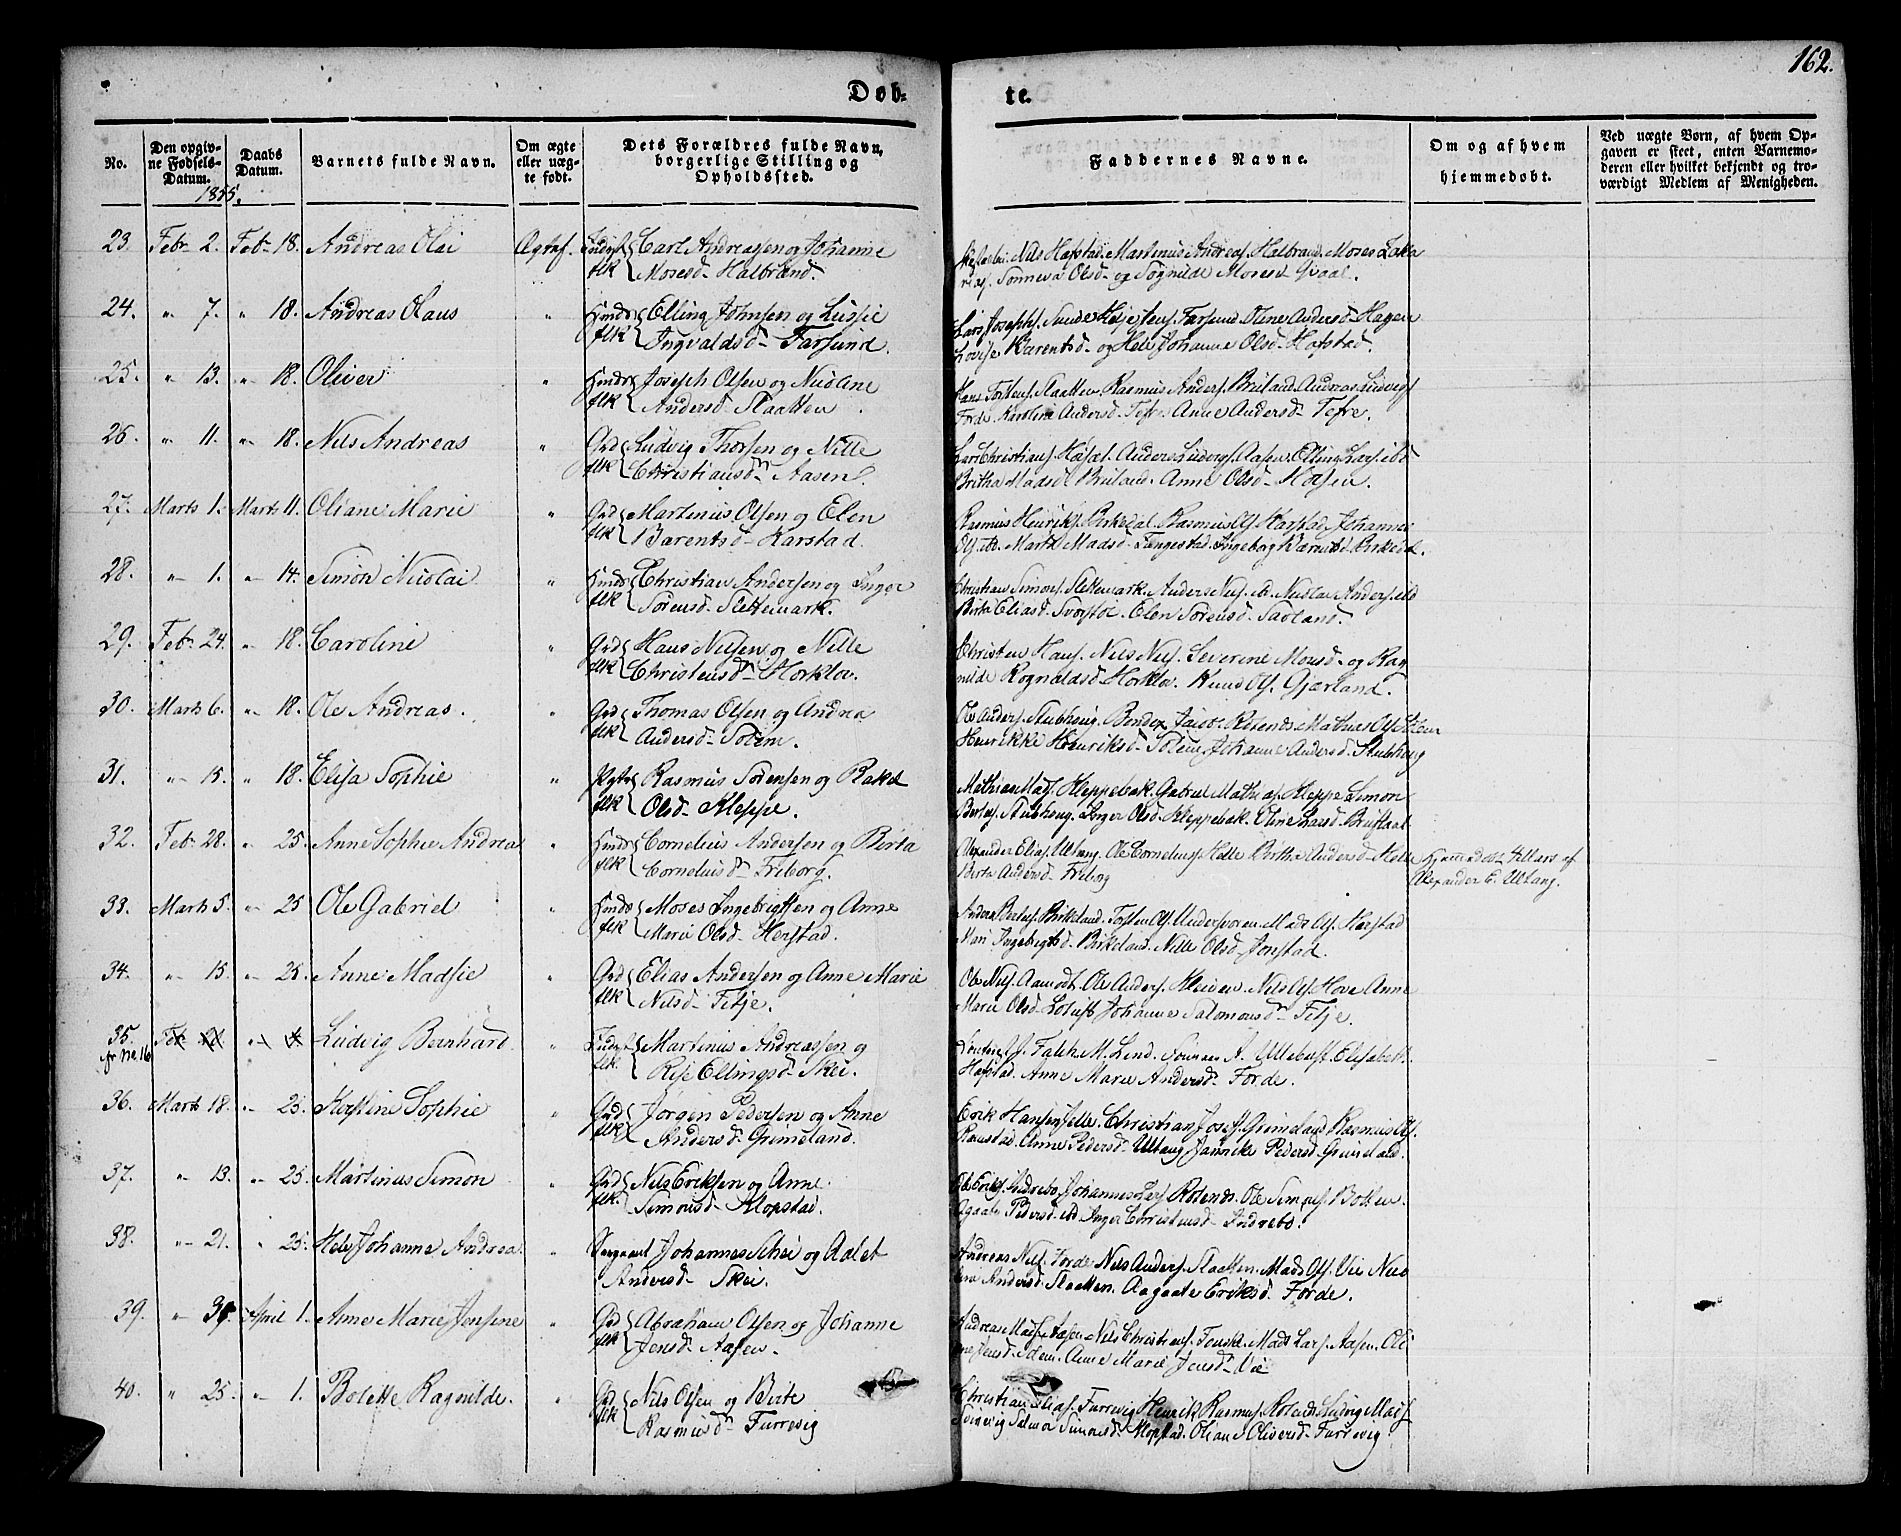 162.
Døb-
te.
No.
Den opgiv-
ne Fødsels-
Datum.
1855.
Daabs
Datum.
Barnets fulde Navn.
Om ægte
eller uæg-
te født.
Dets Forældres fulde Navn,
borgerlige Stilling og
Opholdssted.
Faddernes Navne.
Om og af hvem
hjemmedøbt.
Ved uægte Børn, af hvem Op-
gaven er skeet, enten Barnemo-
deren eller hvilket bekjendt og tro-
værdigt Medlem af Menigheden.
23. Febr 2. Feb 18. Andreas Olai Ægtef. Carl Andreassen og Johanne
flk Mosesd. Halbrand.
Nils Hafstad Martinus Andreas. Halbrand Moses Zaka
rias. Sønneva Olsd. og Sognilde Mosesd Qvaal.
24. " 7. " 18. Andreas Olaus " Huusm Elling Johnsen og Lussie
flk Ingvaldsd. Farsund.
Lars Joseph. Farsund Oline Andersd. Hagen
Lovise Barentsd. og Hele Johanne Olsd. Hafstad.
25. " 13. " 18. Oliver " Huusm Joseph Olsen og Nicoline
flk Andersd. Slaatten.
Hans Slaatten. Rasmus Anders. Bruland. Andreas Ludvigs.
Førde. Karoline Andersd. Tefre. Anne Andersd. Tefre.
26. " 11. " 18. Nils Andreas " Grd Ludvig Thorsen og Nille
flk Christiansdr Aasen.
Lars Christians. Anders Ludvigs. Aasen. Elling Lars. ibd
Britha Madsd Bruland. Anne Olsd.
27. Marts 1. Marts 11. Oliane Marie " Grd Martinus Olsen og Elen
flk Barentsd. Harstad.
Rasmus Henriks. Birkedal. Rasmus Ols. Harstad. Johannes
Ols. ib. Marte Madsd. Tængestad. Ingeborg Bærentsd. Birkedal.
28. " 1. " 14. Simon Nicolai " Huusm Christian Andersen og Inger
flk Sørensd. Slettemark.
Christian Simons. Slettemark. Anders Nils. ib. Anders. ibd
Birte Eliasd. Elen Sørensd. Savland.
29. Feb 24. " 18. Caroline " Grd Hans Nilsen og Nille
flk Christensdr Horklov.
Christen Hans. Nils Nils. Severine Monsd. og Rag
nilde Rognaldsd Horklov. Knud Ols. Gjærland.
30. Marts 6. " 18. Ole Andreas. " Grd Thomas Olsen og Andrea
flk Andersd. Solem.
Ole Anders. Stubhoug. Bendix Jacob. Mathias Ols. Solem
Henrikke Henriksd. Solem. Johanne Andersd. Stubhoug
31. " 15. " 18. Elisa Sophie " Rasmus Sørensen og Rakel
flk Olsd. Kleppe.
Mathias Mads. Kleppebak. Gabriel Mathias. Kleppe Simon
Bertes. Stubhoug. Inger Olsd. Kleppebak. Eline Larsd.
32. Feb 28. " 25. Anne Sophie Andrea " Huusm Cornelius Andersen og Berta
flk Corneliusdr Friborg.
Alexander Elias. Ultang. Ole Cornelius. Helle Britha Andersd. Helle
Berta Andersd. Friborg
Hjemmedøbt 4 Marts af
Alexander E. Ultang.
33. Marts 5. " 25 Ole Gabriel " Huusm Moses Ingebrigtsen og Anne
flk Marie Olsd. Herstad.
Andreas Bertes. Birkeland. Torsten Ols. Mads Ols. Herstad
Mari Ingebrigtsd. Birkeland. Nille Olsd. Jonstad.
34. " 15. " 25. Anne Madsie " Grd Elias Andersen og Anne Marie
flk Nilsd. Fitje.
Ole Nils. Aamodt. Ole Anders. Kleiven. Nils Ols. Hove Anne
Marie Olsd. Johanne Salomonsdr Fitje.
35. fr No. 16 Feb Ludvig Bernhard. " Martinus Andreassen og
flk. Elllingsd. Skei.
J. Falch M. Lind. A. Ullebust. Elisabeth
Hafstad. Anne Marie Andersd. Førde.
36. Marts 18. " 25. Kerstine Sophie " Grd Jørgen Pedersen og Anne
flk Andersd. Grimeland.
Erik Hansen Jelle. Christian Josef. Grimeland Rasmus Ols.
Anne Pedersd. Ultang Jannike Pedersd. Grimeland.
37. " 13. " 25. Martinus Simon " Grd Nils Eriksen og Anne
flk. Simonsd. Klopstad.
Ole Eriks. Indrebø. Johannes Ole Simons. Botten.
Agaate Pedersd ibd Inger Christensd. Indrebø.
38. " 21. " 25. Hele Johanne Andrea. " Sergeant Johannes Schei og Adlet
Andersd. Skei.
Andreas Nils. Førde. Nils Anders. Slaatten. Mads Ols. Vie
Andersd. Slaatten. Aagaate Eriksd. Førde.
39. " April 1. Anne Marie Jensine " Grd Abraham Olsen og Johanne
flk Jensd. Aasen.
Andreas Mads. Aasen. Nils Christians. Mads Lars. Aasen. Oli
Jensd. Solem. Anne Marie Jensd. Vie
40. " 25. " 1. Bolette Ragnilde. " Grd Nils Olsen og Birte
flk Rasmusdr Furrevig
Christian Elias. Furrevig Henrik Rasmus. Ludvig Mads.
Simonsd. Klopstad. Oliane Oliversd. Furrevig